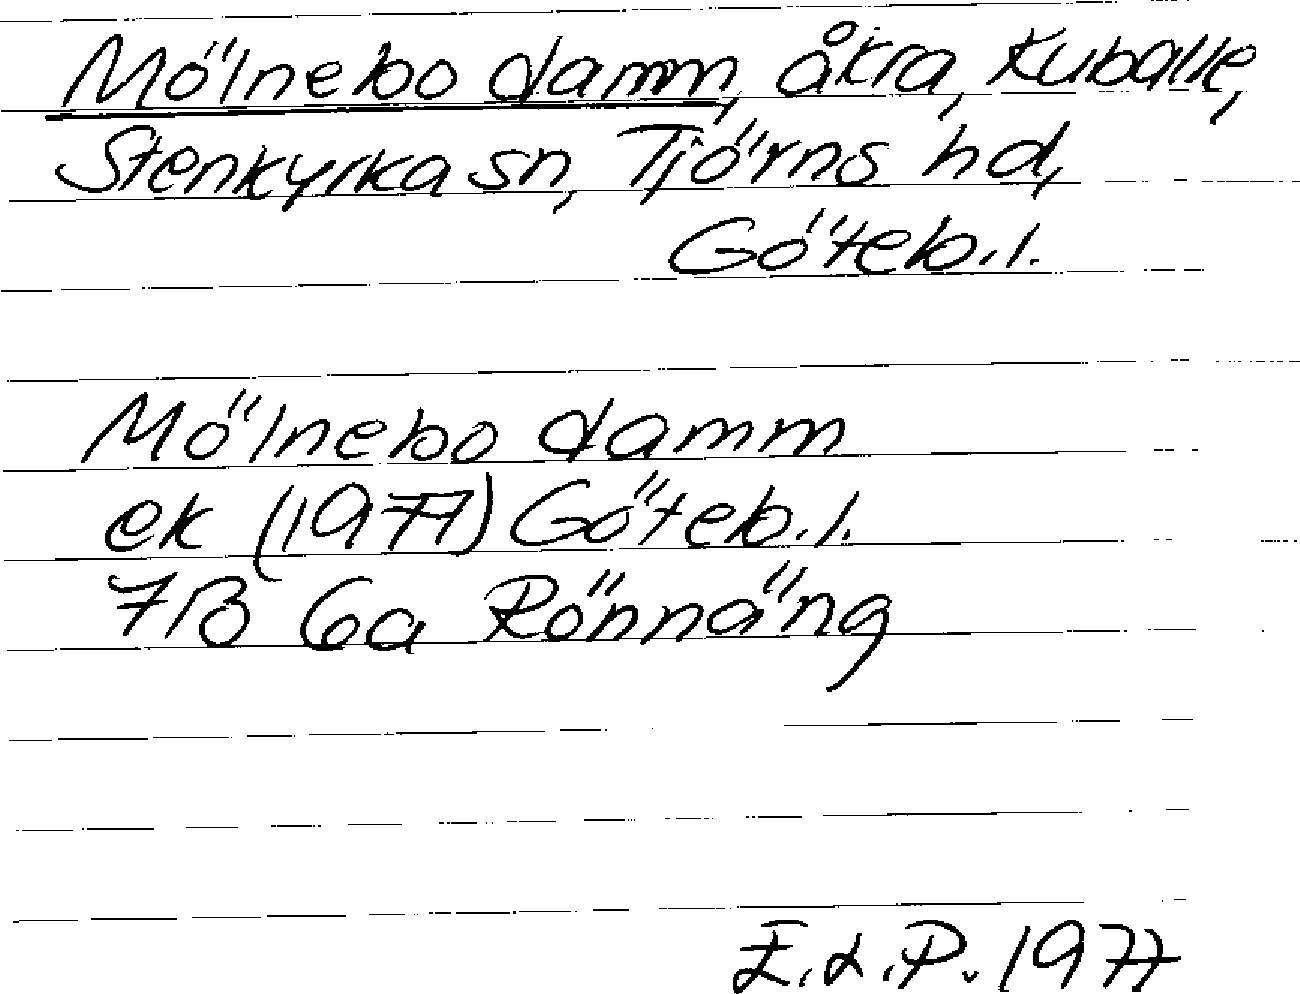 Mölnebo damm, åkra, Kuballe,
Stenkyrka sn, Tjörns hd,
Göteb. l.
Mölnebo damm
ek (1977) Göteb. l.
7B 6a Rönnäng
E.L.P. 1977